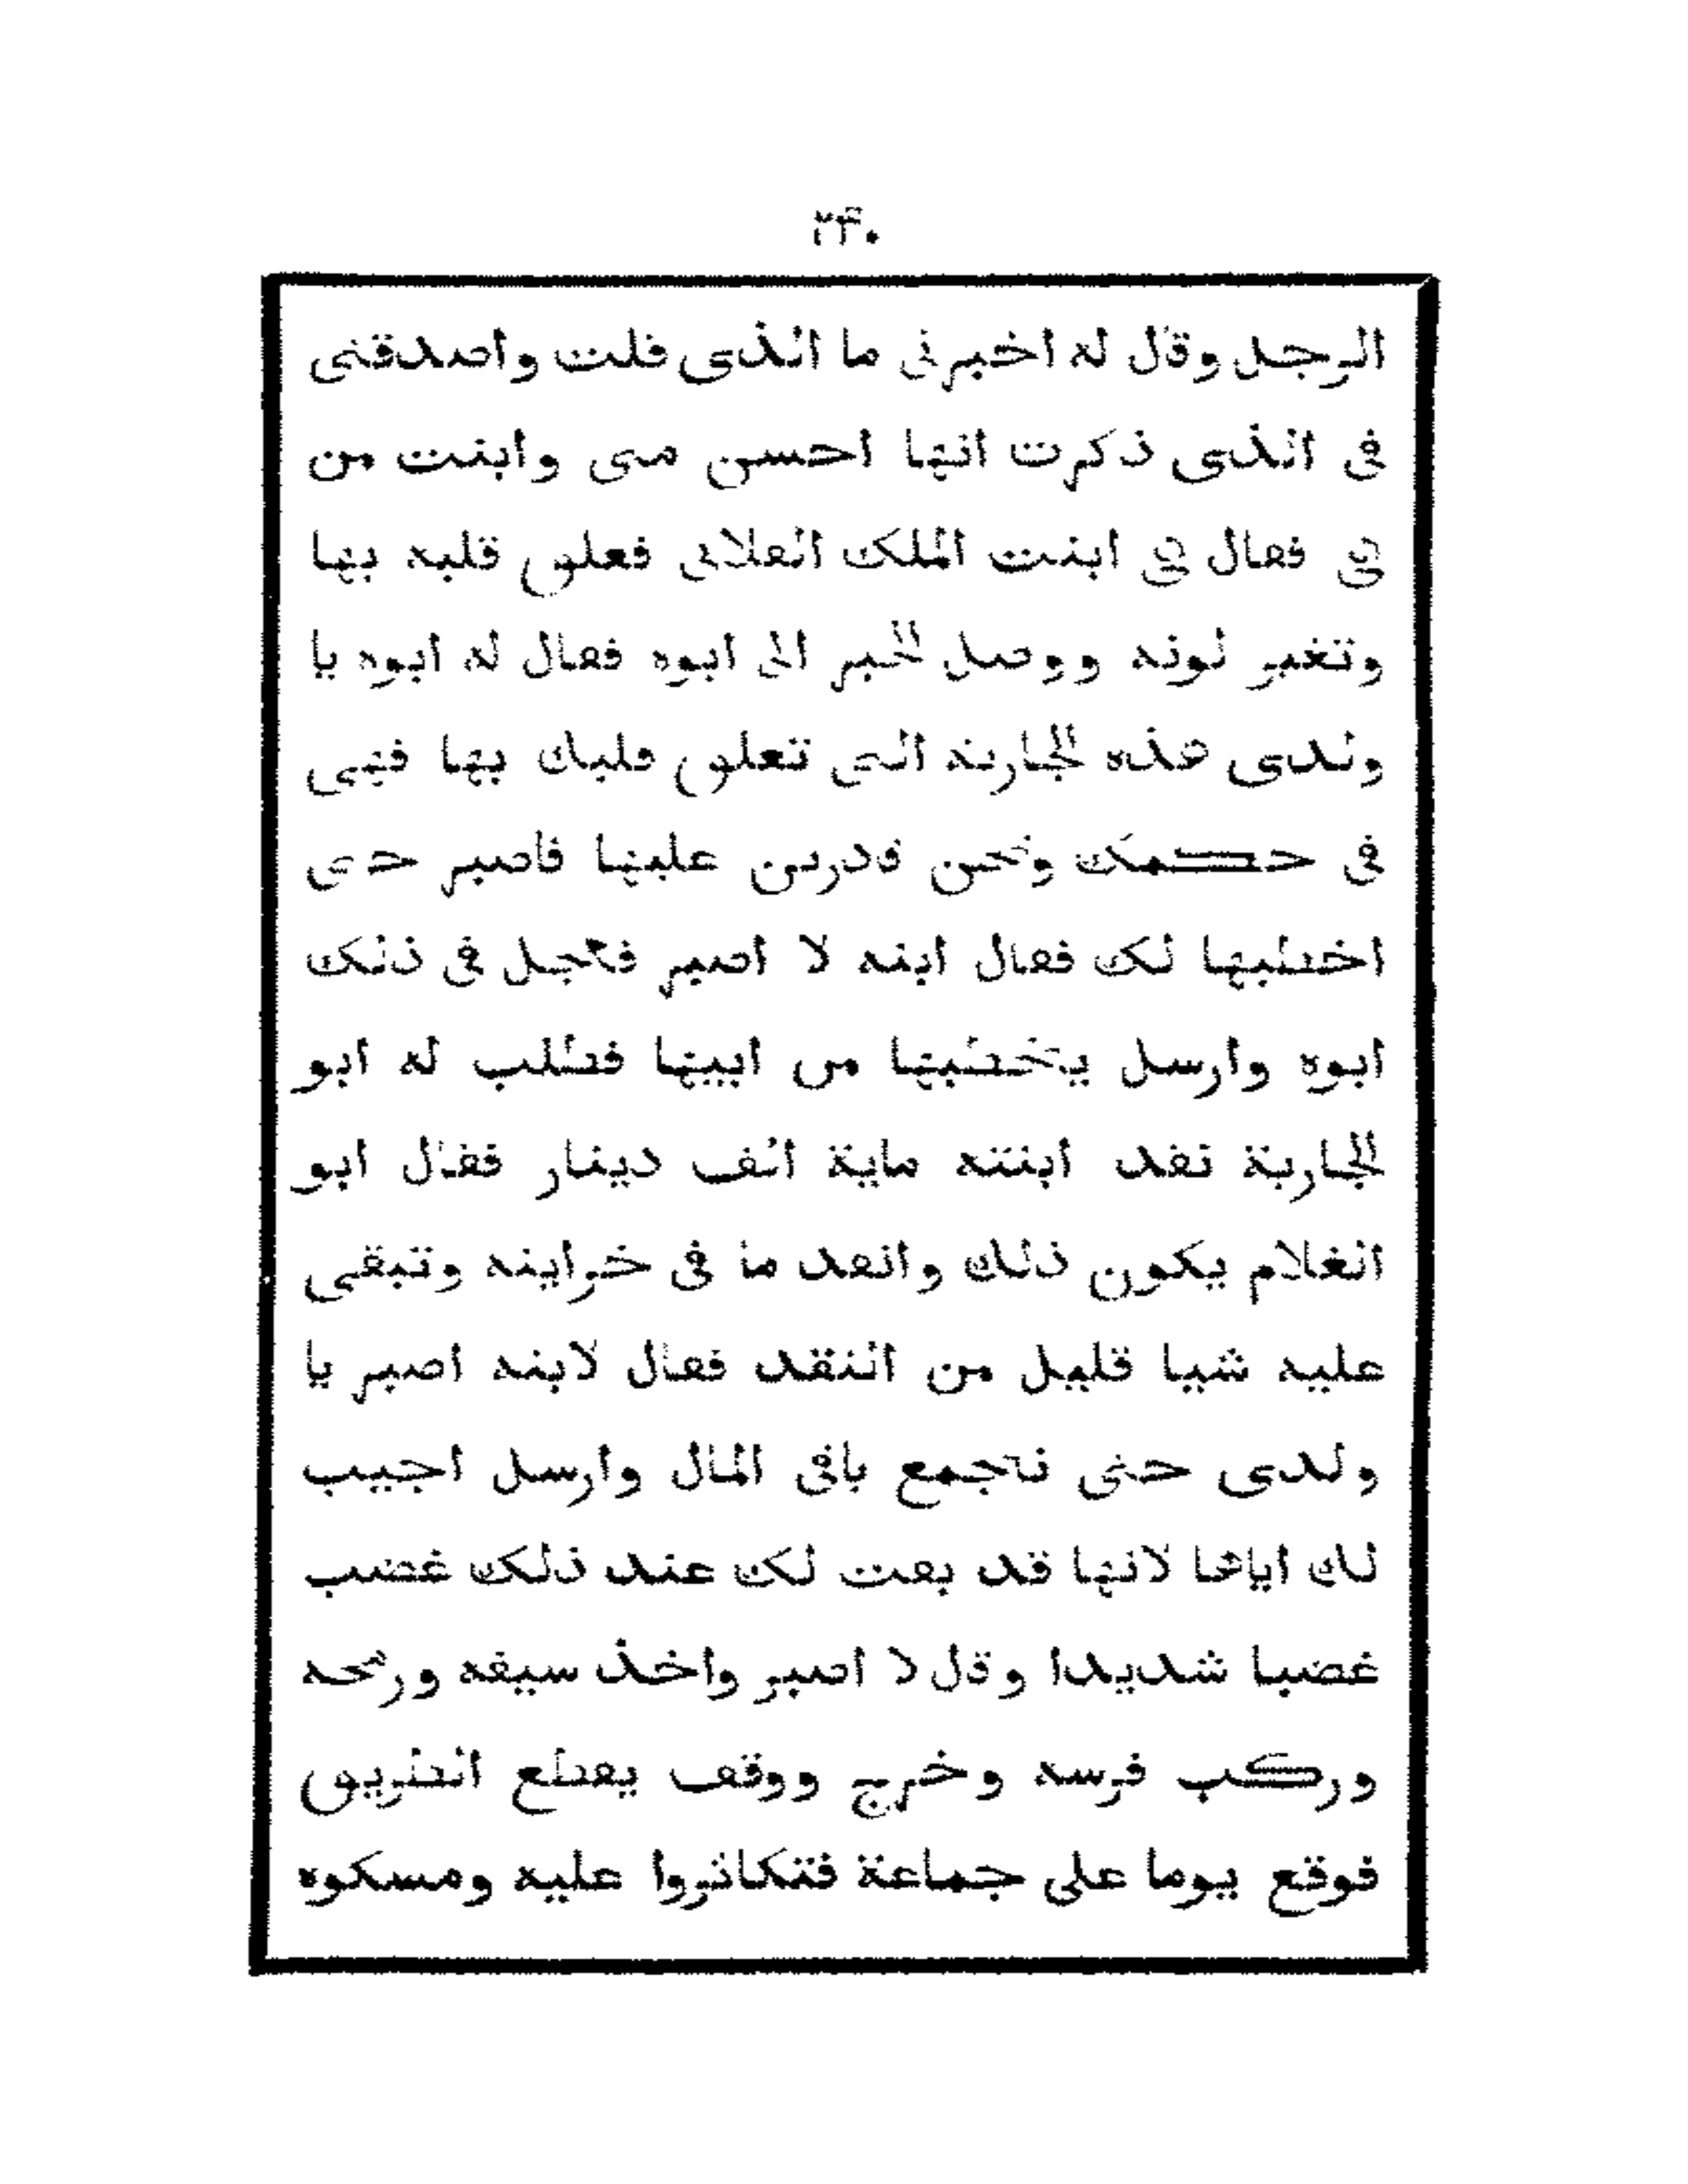 ٢۴٠
الرجل وقال له اخبرنى ما الذى قلت واصدقنى
فى الذى ذكرت انها احسن منى وابنت من
هى فقال هى ابنت الملك الفلانى فعلق قلبه بها
وتغير لونه ووصل الخبر الى ابوه فقال له ابوه يا
ولدى هذه الجارية التى تعلق قلبك بها فهى
فى حكمك ونحن قادرين عليها فاصبر حتى
اخطبها لك فقال ابنه لا اصبر فعجل فى ذلك
ابوه وارسل يخطبها من ابيها فطلب له ابو
الجارية نقد ابنته ماية الف دينار فقال ابو
الغلام يكون ذلك وانقد ما فى خزاينه وتبقى
عليه شيا قليل من النقد فقال لابنه اصبر يا
ولدى حتى نجمع باقى المال وارسل اجيب
لك اياها لانها قد بقت لك عند ذلك غضب
غضبا شديدا وقال لا اصبر واخذ سيفه ورمحه
وركب فرسه وخرج ووقف يقطع الطريق
فوقع يوما على جماعة فتكاثروا عليه ومسكوه